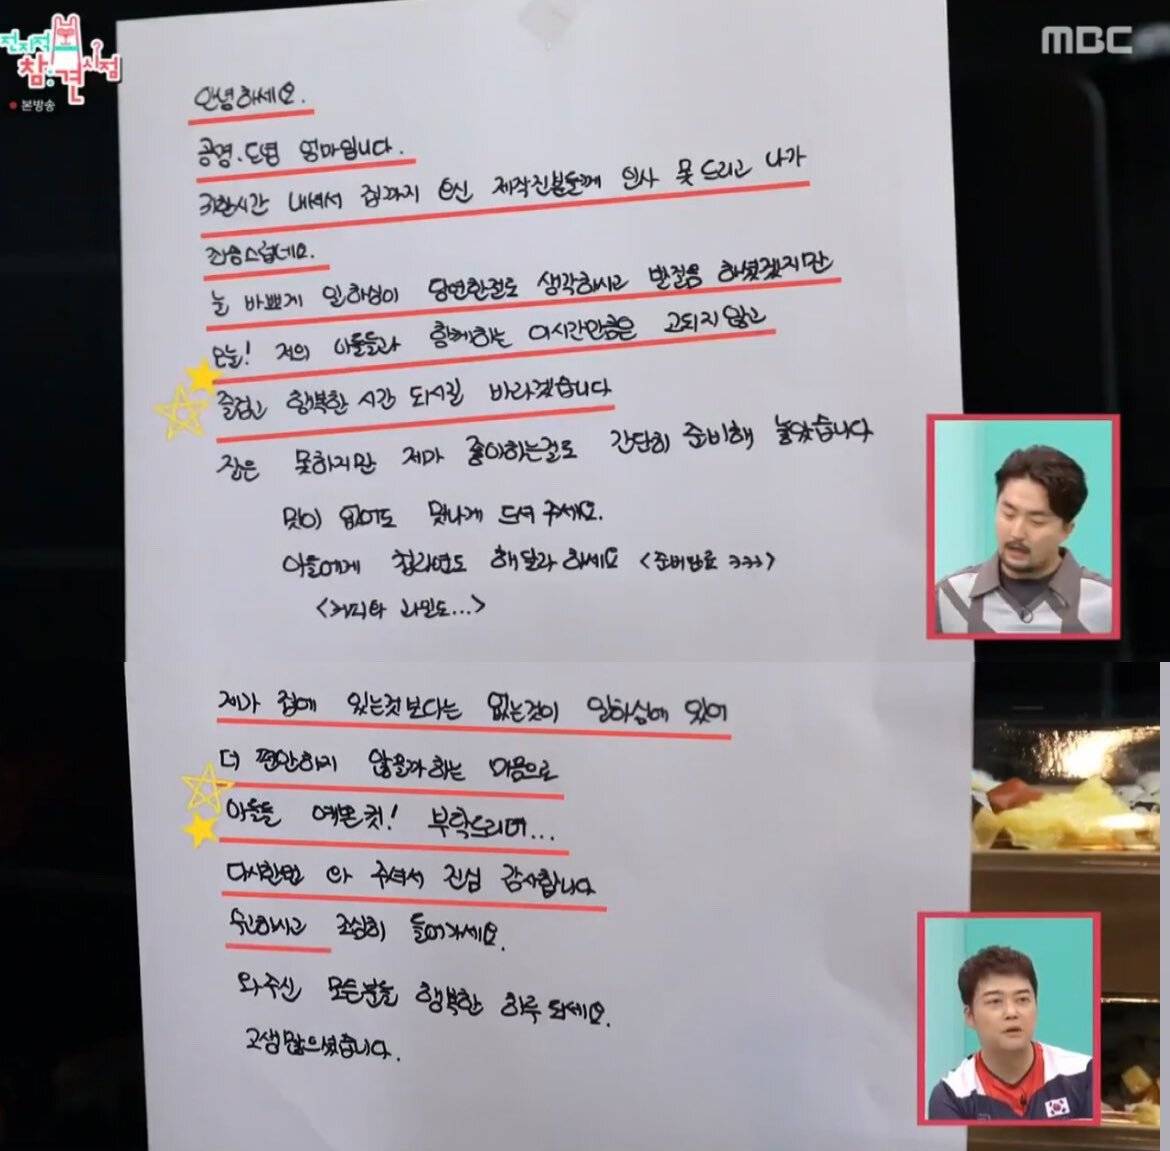 전지적
참견 시점
본방송
MBC
안녕하세요.
공명. 도영 엄마입니다.
귀한시간 내셔서 집까지 오신 제작진분들께 인사 못 드리고 나가
죄송스럽네요.
늘 바쁘게 일하심이 당연한걸로 생각하시고 발걸음 하셨겠지만
오늘! 저의 아들들과 함께하는 이시간만큼은 고되지 않고
즐겁고 행복한 시간 되시길 바라겠습니다
잘은 못하지만 제가 좋아하는걸로 간단히 준비해 놓았습니다
맛이 없어도 맛나게 드셔 주세요.
아들에게 컵라면도 해달라 하세요 <준비완료 ㅋㅋㅋ>
<커피타 라만도...>
제가 집에 있는것 보다는 없는것이 일하심에 있어
더 편안하지 않을까하는 마음으로
아들들 예쁜컷! 부탁드리며...
다시한번 와 주셔서 진심 감사합니다
수고하시고 조심히 들어가세요.
와주신 모든분들 행복한 하루 되세요.
고생많으셨습니다.